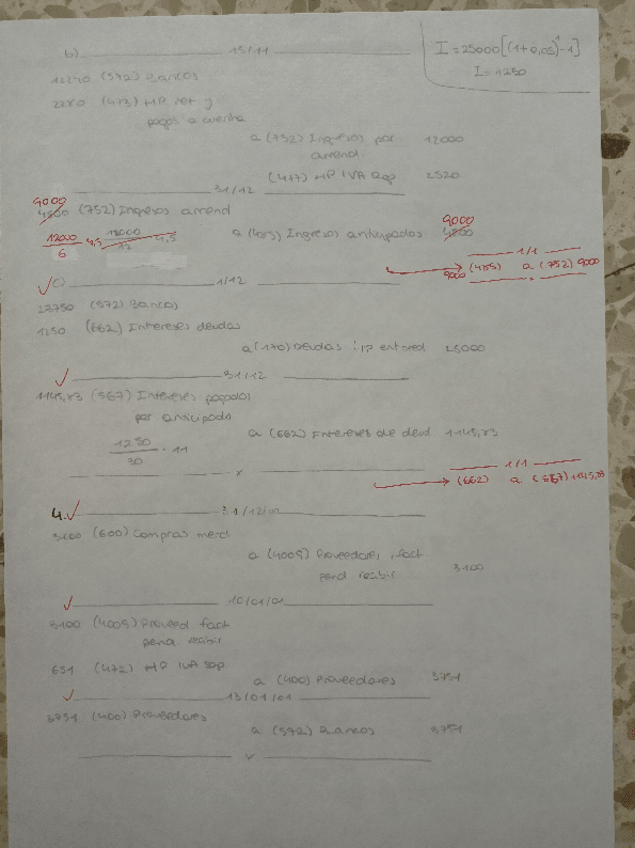 b) 15/11
I = 25000 [(1+0,05)¹ - 1]
I = 1250
12240 (572) Bancos
2280 (473) HP ret y
pagos a cuenta
a (752) Ingresos por 12000
arrend.
(477) HP IVA Rep 2520
31/12
9000 9000
4500 (752) Ingresos arrend
a (485) Ingresos anticipados 4500
12000/6 · 4,5
1/1
9000 (485) a (752) 9000
c) 1/12
23750 (572) Bancos
1250 (662) Intereses deudas
a (170) Deudas l/p ent cred 25000
31/12
1145,83 (567) Intereses pagados
por anticipado
a (662) Intereses de deud 1145,83
1250 · 11
1/1
(662) a (567) 1145,83
4. 31/12/00
3100 (600) Compras merd
a (4009) Proveedores, fact
pend recibir 3100
10/01/01
3100 (4009) Proveed fact
pend. recibir
651 (472) HP IVA sop
a (400) Proveedores 3751
13/01/01
3751 (400) Proveedores
a (572) Bancos 3751